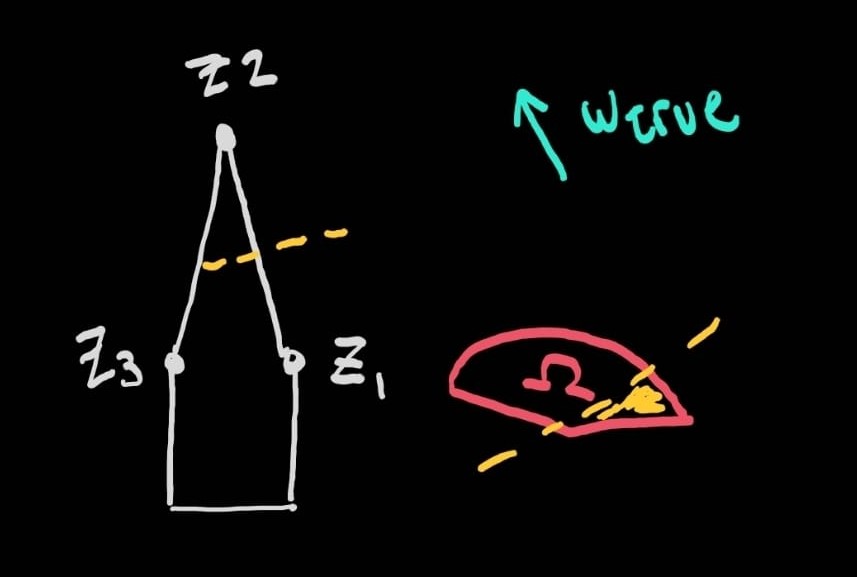 z2
wtrue
z3
z1
Ω